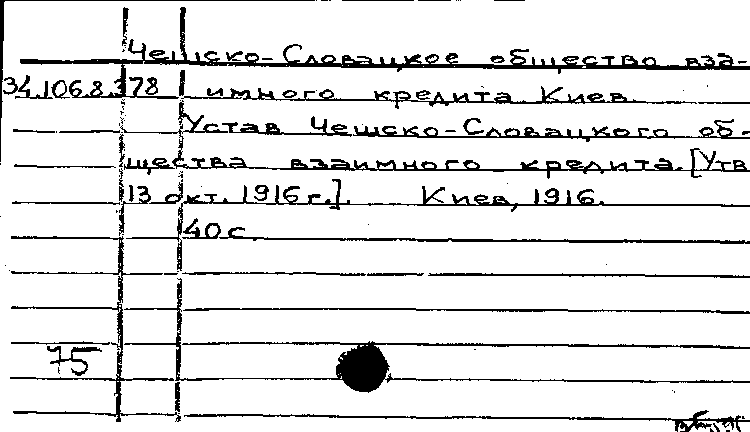 Чешско-Словацкое общество вза-
34.106.8.378 имного кредита. Киев.
Устав Чешско-Словацкого об-
щества взаимного кредита. [Утв
13 окт. 1916 г.]. Киев, 1916.
40 с.
75